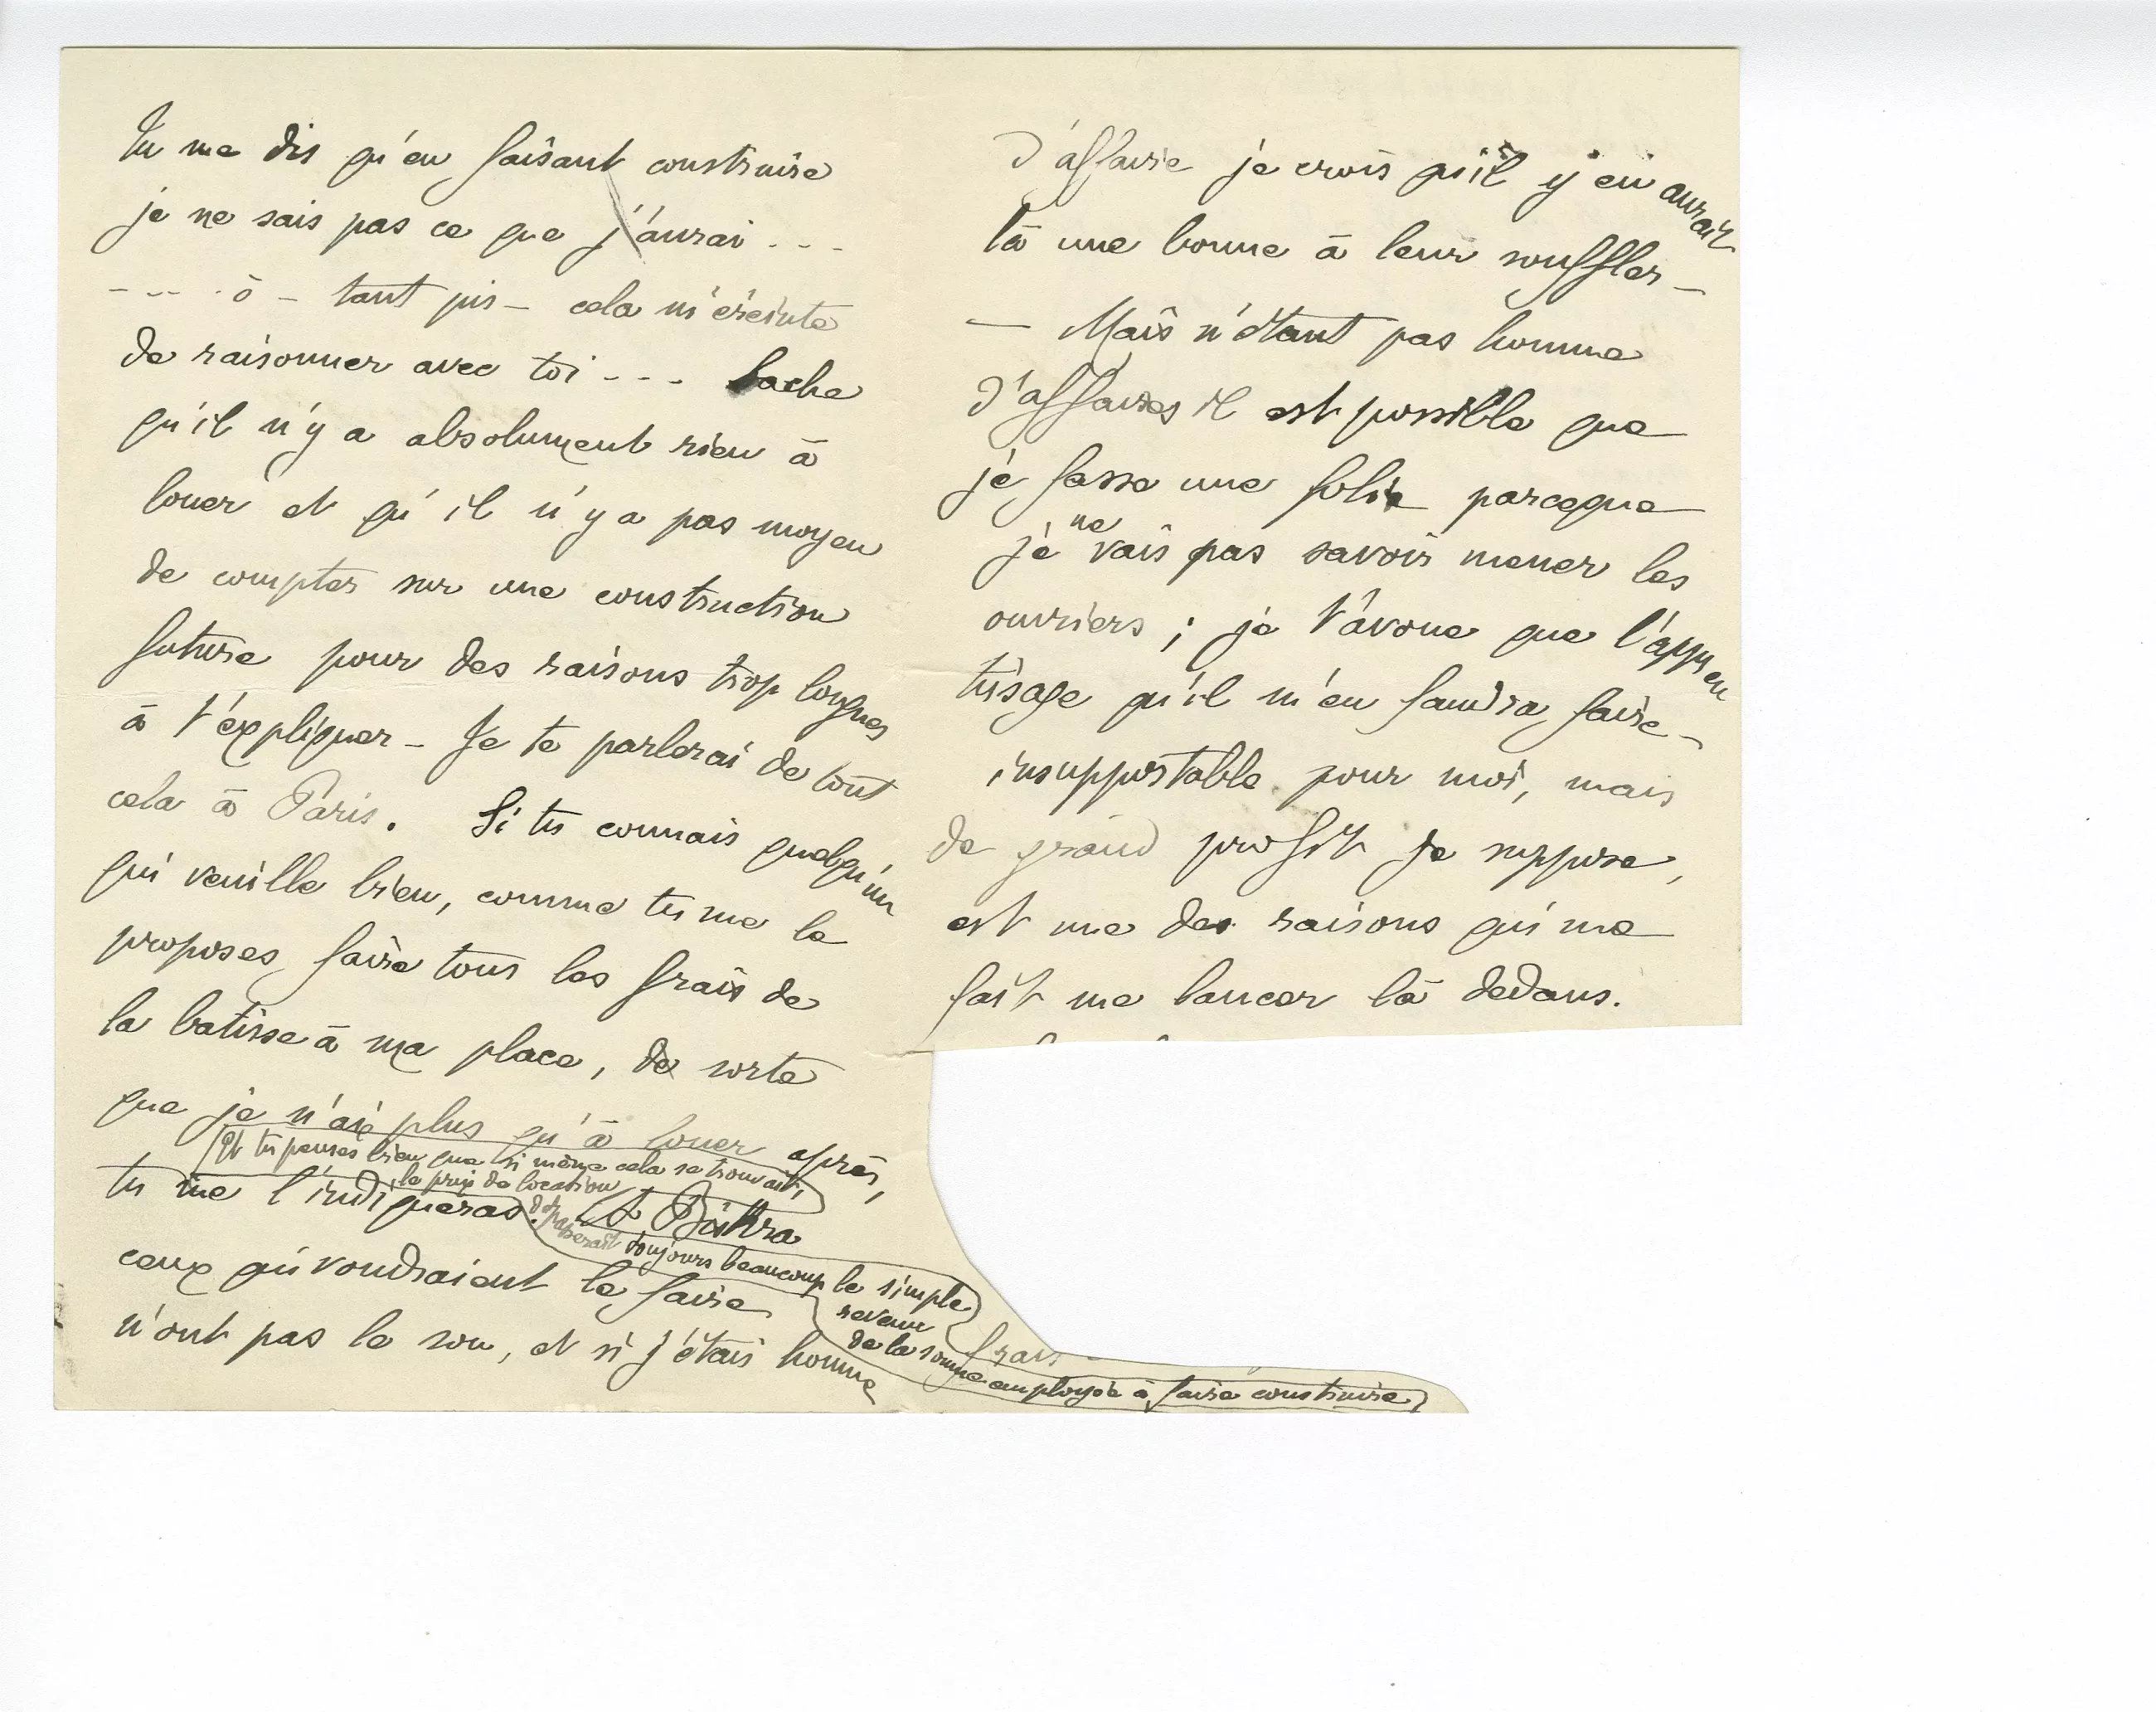 Tu me dis qu'en faisant construire
je ne sais pas ce que j'aurai . . .
- - - . ô - tant pis - cela m'éreinte
de raisonner avec toi - - - Sache
qu'il n'y a absolument rien à
louer et qu'il n'y a pas moyen
de compter sur une construction
future pour des raisons trop longues
à t'expliquer - Je te parlerai de tout
cela à Paris. Si tu connais quelqu'un
qui veuille bien, comme tu me le
proposes, faire tous les frais de
la batisse à ma place, de sorte
que je n'aie plus qu'à louer après,
tu me l'indiqueras.
(Et tu penses bien que si même cela se trouvait,
le prix de location
dépasserait toujours beaucoup le simple
revenu
de la somme employée à faire construire)
ceux qui voudraient le faire
n'ont pas le sou, et si j'étais homme
d'affaire je crois qu'il y en aurait
là une bonne à leur souffler -
- Mais n'étant pas homme
d'affaires il est possible que
je fasse une folie parceque
je ne vais pas savoir mener les
ouvriers ; je t'avoue que l'appren
tisage qu'il m'en faudra faire -
insupportable pour moi, mais
de grand profit je suppose,
est une des raisons qui me
fait me lancer là dedans.
frais